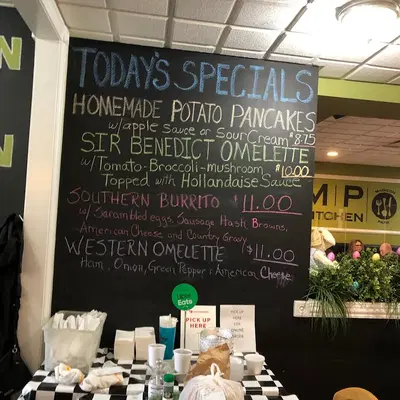 TODAY'S SPECIALS
HOMEMADE POTATO PANCAKES
w/apple sauce or Sour Cream $8.75
SIR BENEDICT OMELETTE
w/Tomato-Broccoli-mushroom $10.00
Topped with Hollandaise Sauce
SOUTHERN BURRITO $11.00
w/Scrambled eggs, Sausage, Hash Browns,
American Cheese and Country Gravy
WESTERN OMELETTE $11.00
Ham, Onion, Green Pepper & American Cheese
MP
KITCHEN
Eats
PICK UP
HERE